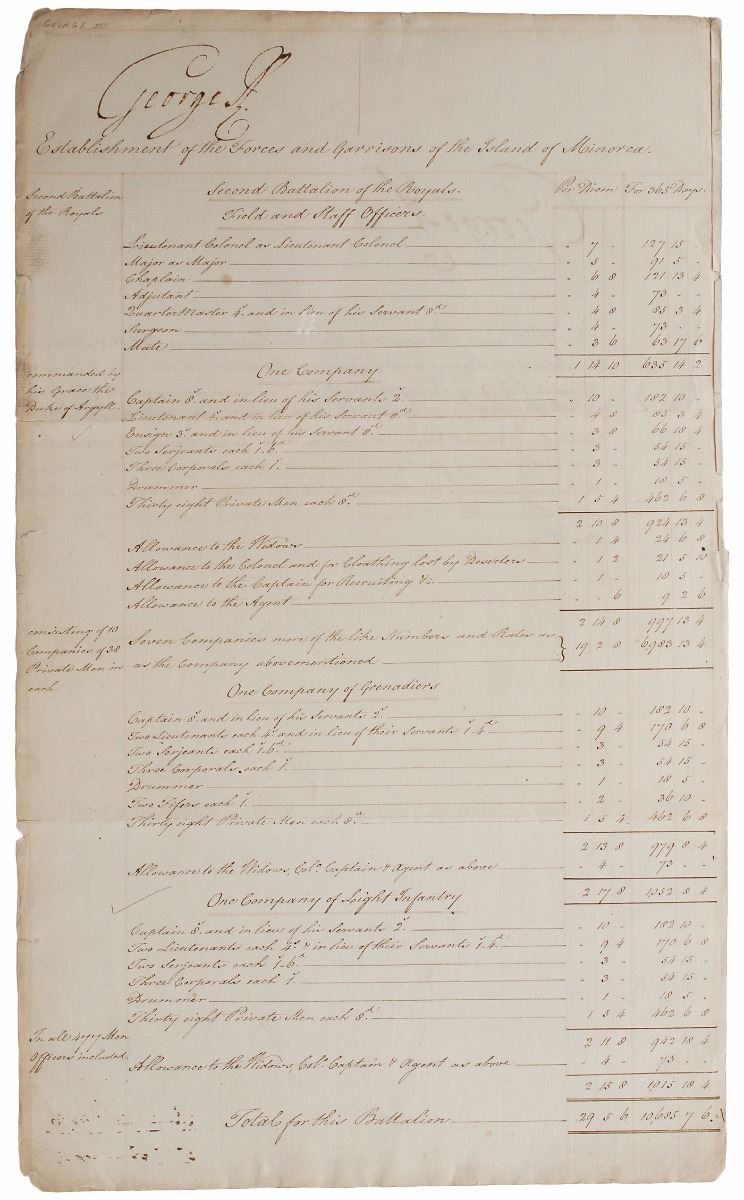 GEORGE III
George R.
Establishment of the Forces and Garrisons of the Island of Minorca.
Second Battalion of the Royals
Second Battalion of the Royals. Per Diem For 365 Days.
Field and Staff Officers.
Lieutenant Colonel as Lieutenant Colonel " 7 " 127 15 "
Major as Major " 5 " 91 5 "
Chaplain " 6 8 121 13 4
Adjutant " 4 " 73 " "
Quarter Master 4s. and in lieu of his Servant 8d. " 4 8 85 3 4
Surgeon " 4 " 73 " "
Mate " 3 6 63 17 6
1 14 10 635 14 2
commanded by his Grace the Duke of Argyll.
One Company
Captain 8s. and in lieu of his Servants 2s. " 10 " 182 10 "
Lieutenant 4s. and in lieu of his Servant 8d. " 4 8 85 3 4
Ensign 3s. and in lieu of his Servant 8d. " 3 8 66 18 4
Two Serjeants each 1s.6d. " 3 " 54 15 "
Three Corporals each 1s. " 3 " 54 15 "
Drummer " 1 " 18 5 "
Thirty eight Private Men each 8d. 1 5 4 462 6 8
2 10 8 924 13 4
Allowance to the Widows " 1 4 24 6 8
Allowance to the Colonel and for Cloathing lost by Deserters " 1 2 21 5 10
Allowance to the Captain for Recruiting &c. " 1 " 18 5 "
Allowance to the Agent " " 6 9 2 6
2 14 8 997 13 4
consisting of 10 Companies of 38 Private Men in each
Seven Companies more of the like Numbers and Rates as
as the Company abovementioned 19 2 8 6983 13 4
One Company of Grenadiers
Captain 8s. and in lieu of his Servants 2s. " 10 " 182 10 "
Two Lieutenants each 4s. and in lieu of their Servants 1s.4d. " 9 4 170 6 8
Two Serjeants each 1s.6d. " 3 " 54 15 "
Three Corporals each 1s. " 3 " 54 15 "
Drummer " 1 " 18 5 "
Two Fifers each 1s. " 2 " 36 10 "
Thirty eight Private Men each 8d. 1 5 4 462 6 8
2 13 8 979 8 4
Allowance to the Widows, Colo. Captain & Agent as above " 4 " 73 " "
2 17 8 1052 8 4
One Company of Light Infantry
Captain 8s. and in lieu of his Servants 2s. " 10 " 182 10 "
Two Lieutenants each 4s. & in lieu of their Servants 1s.4d. " 9 4 170 6 8
Two Serjeants each 1s.6d. " 3 " 54 15 "
Three Corporals each 1s. " 3 " 54 15 "
Drummer " 1 " 18 5 "
Thirty eight Private Men each 8d. 1 5 4 462 6 8
2 11 8 942 18 4
In all 477 Men Officers included
Allowance to the Widows, Colo. Captain & Agent as above " 4 " 73 " "
2 15 8 1015 18 4
Total for this Battalion 29 5 6 10685 7 6